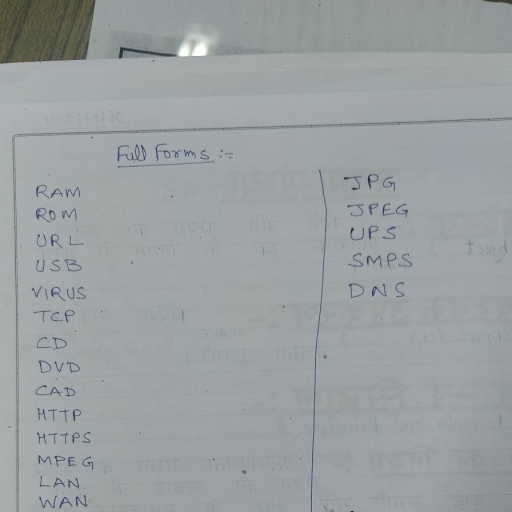 Full Forms :-
RAM
ROM
URL
USB
VIRUS
TCP
CD
DVD
CAD
HTTP
HTTPS
MPEG
LAN
WAN
JPG
JPEG
UPS
SMPS
DNS